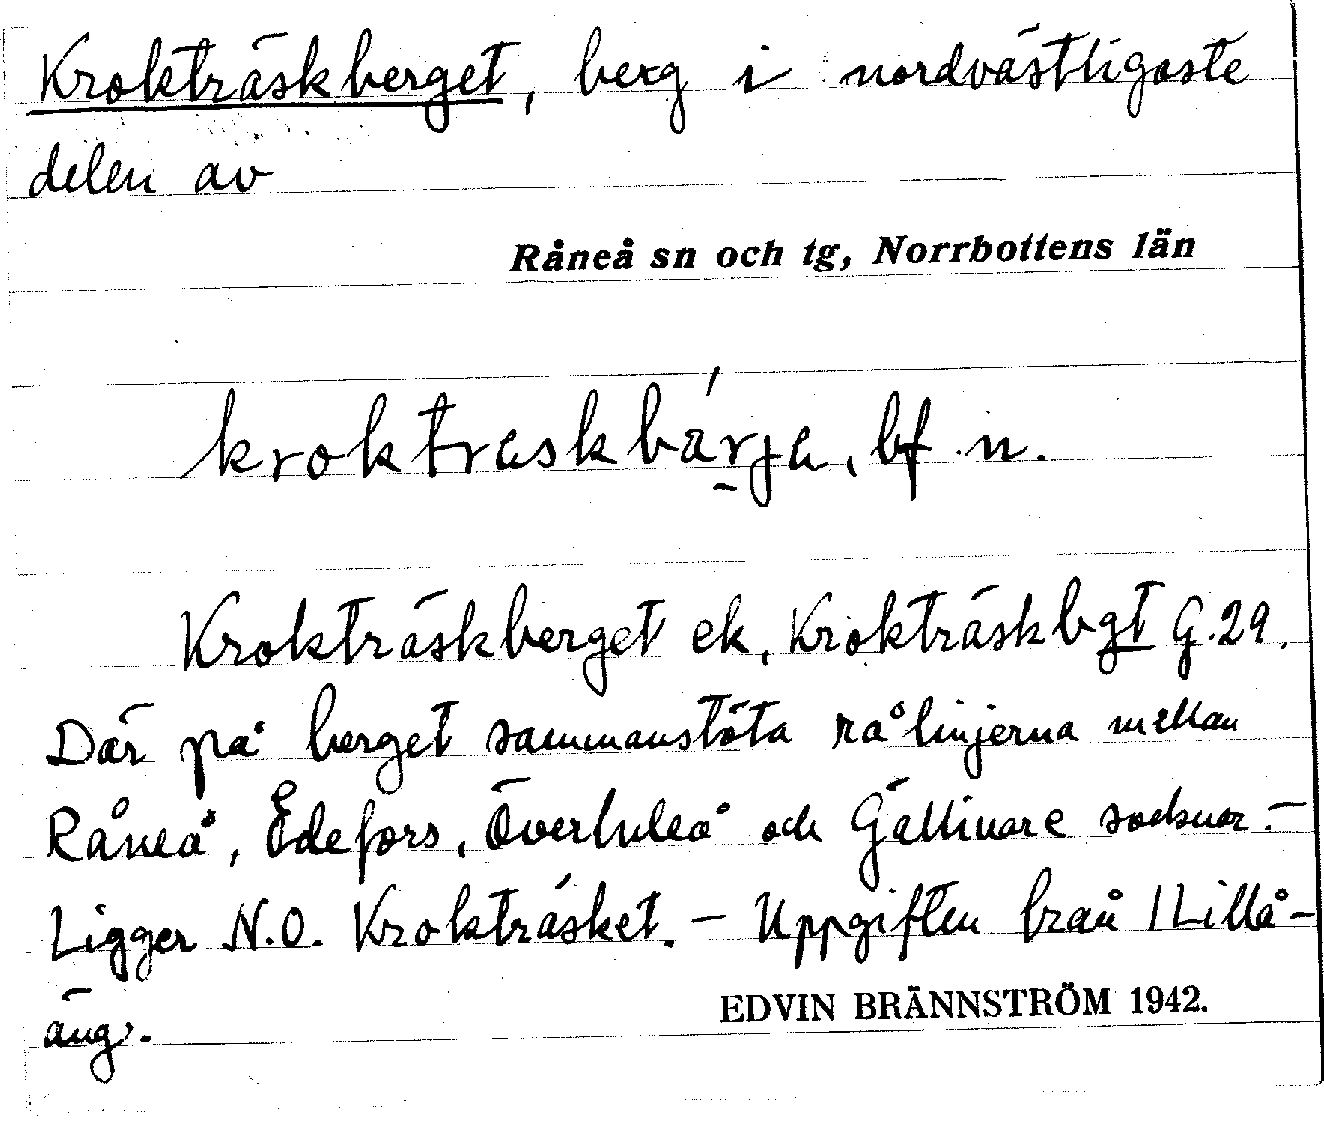 Krokträskberget, berg i nordvästligaste
delen av
Råneå sn och tg, Norrbottens län
kroktraskbárja, bf. n.
Krokträskberget ek, Krokträskbgt G.29.
Där på berget sammanstöta rålinjerna mellan
Råneå, Edefors, Överluleå och Gällivare socknar. –
Ligger N.O. Krokträsket. – Uppgiften från Lillå-
äng.
EDVIN BRÄNNSTRÖM 1942.